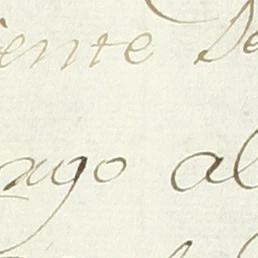 iente De
ago al